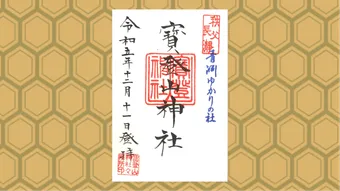 秩父
長瀞
青淵ゆかりの社
寶登山神社
令和五年十二月十一日登拝